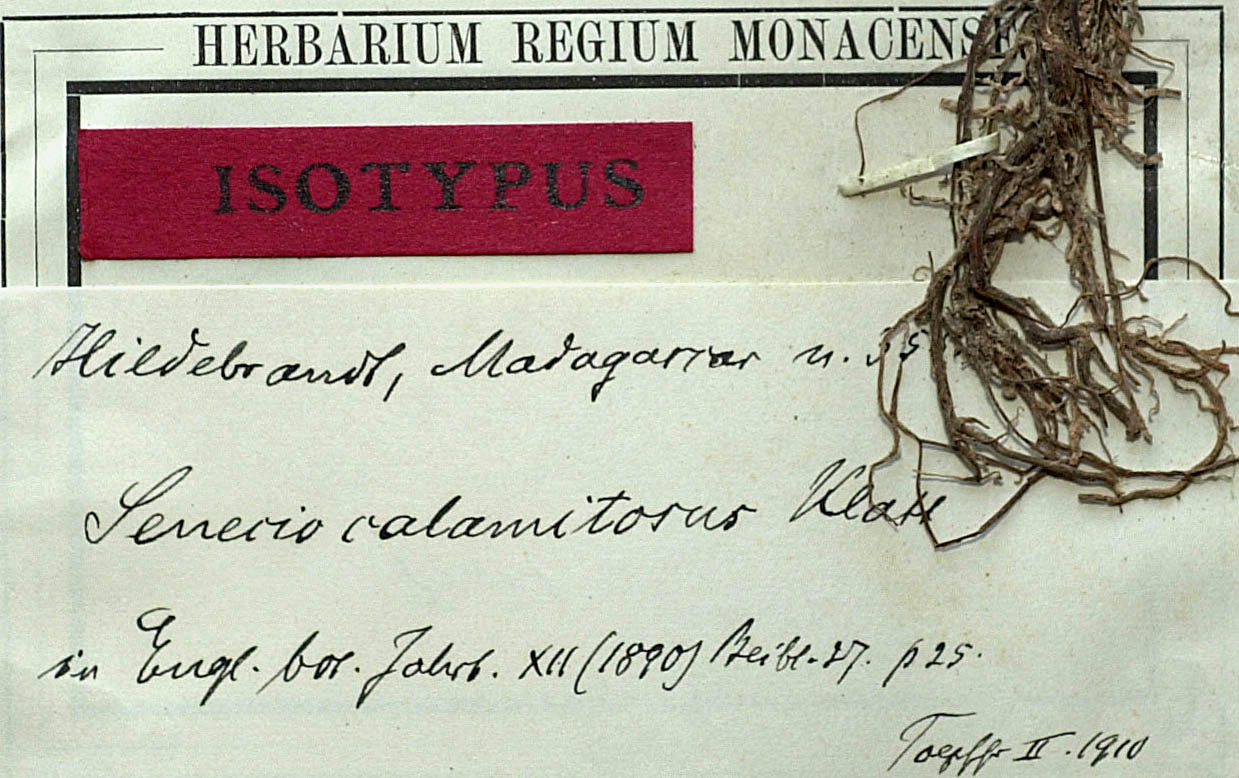 HERBARIUM REGIUM MONACENSE
ISOTYPUS
Hildebrandt, Madagascar n.
Senecio calamitosus Klatt
in Engl. bot. Jahrb. XII (1890) Beibl. 27. p 25.
Toepffer II. 1910